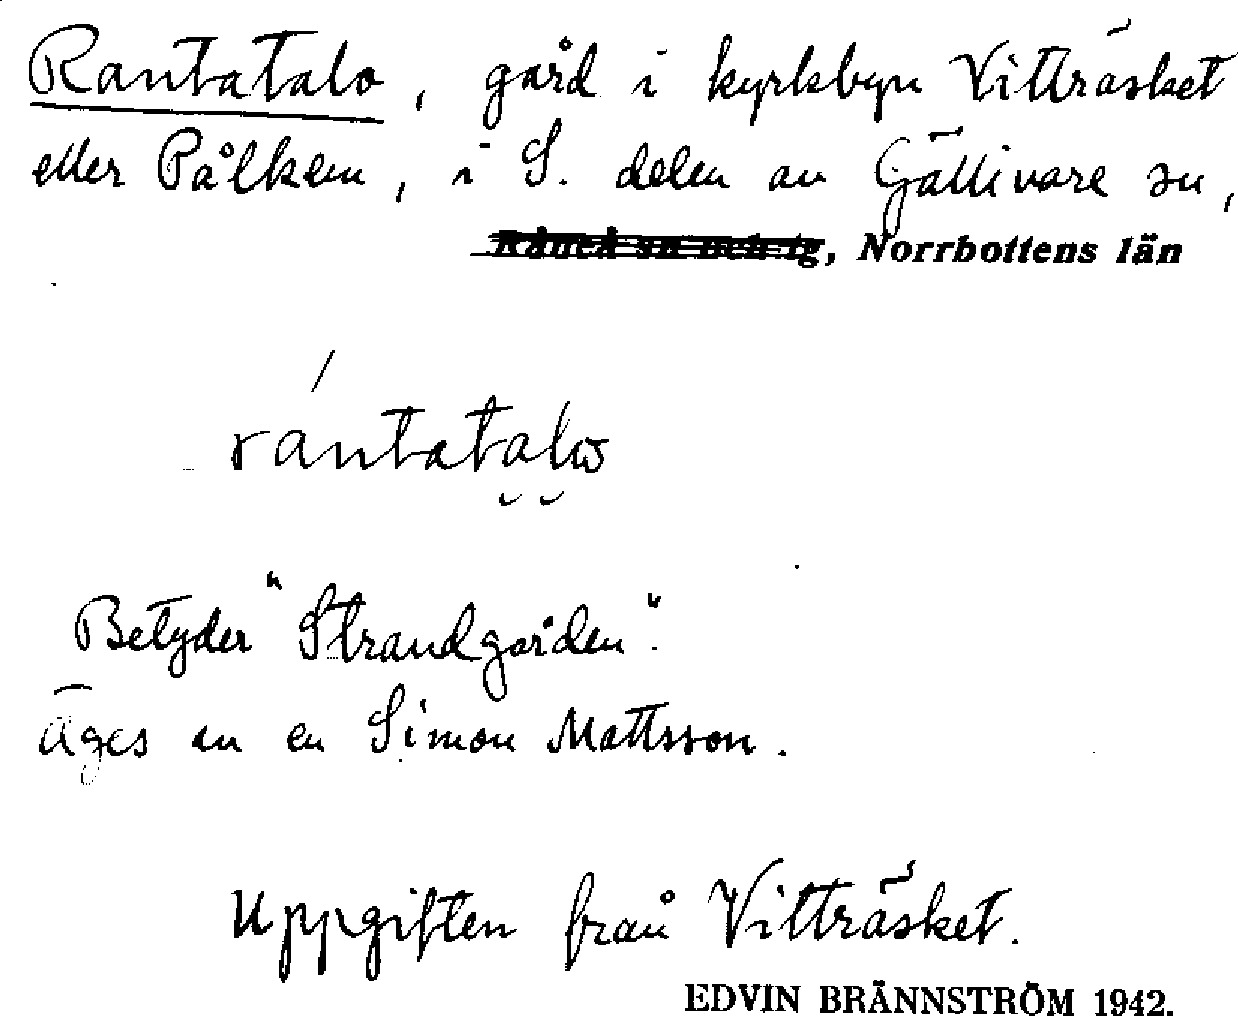 Rantatalo, gård i kyrkbyn Vitträsket
eller Pålkem, i S. delen av Gällivare sn,
~~Råneå sn och tg~~, Norrbottens län
rántatalω
Betyder "Strandgården".
Äges av en Simon Mattsson.
Uppgiften från Vitträsket.
EDVIN BRÄNNSTRÖM 1942.